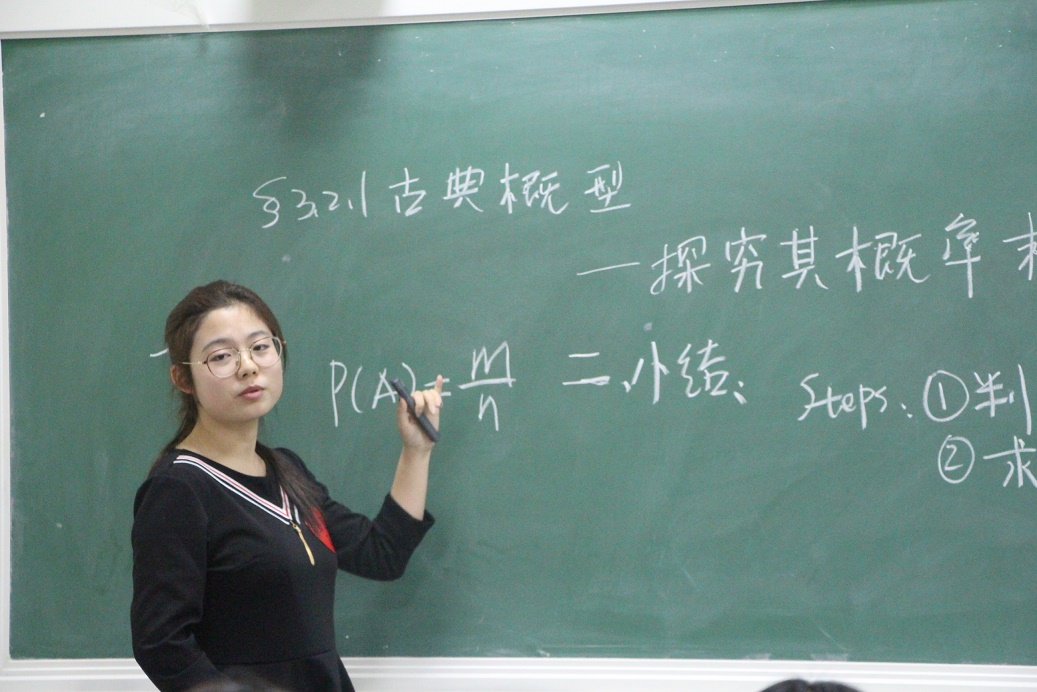 §3.2.1 古典概型
一探究其概率
P(A)=m/n
二、小结:
Steps: ①判
②求